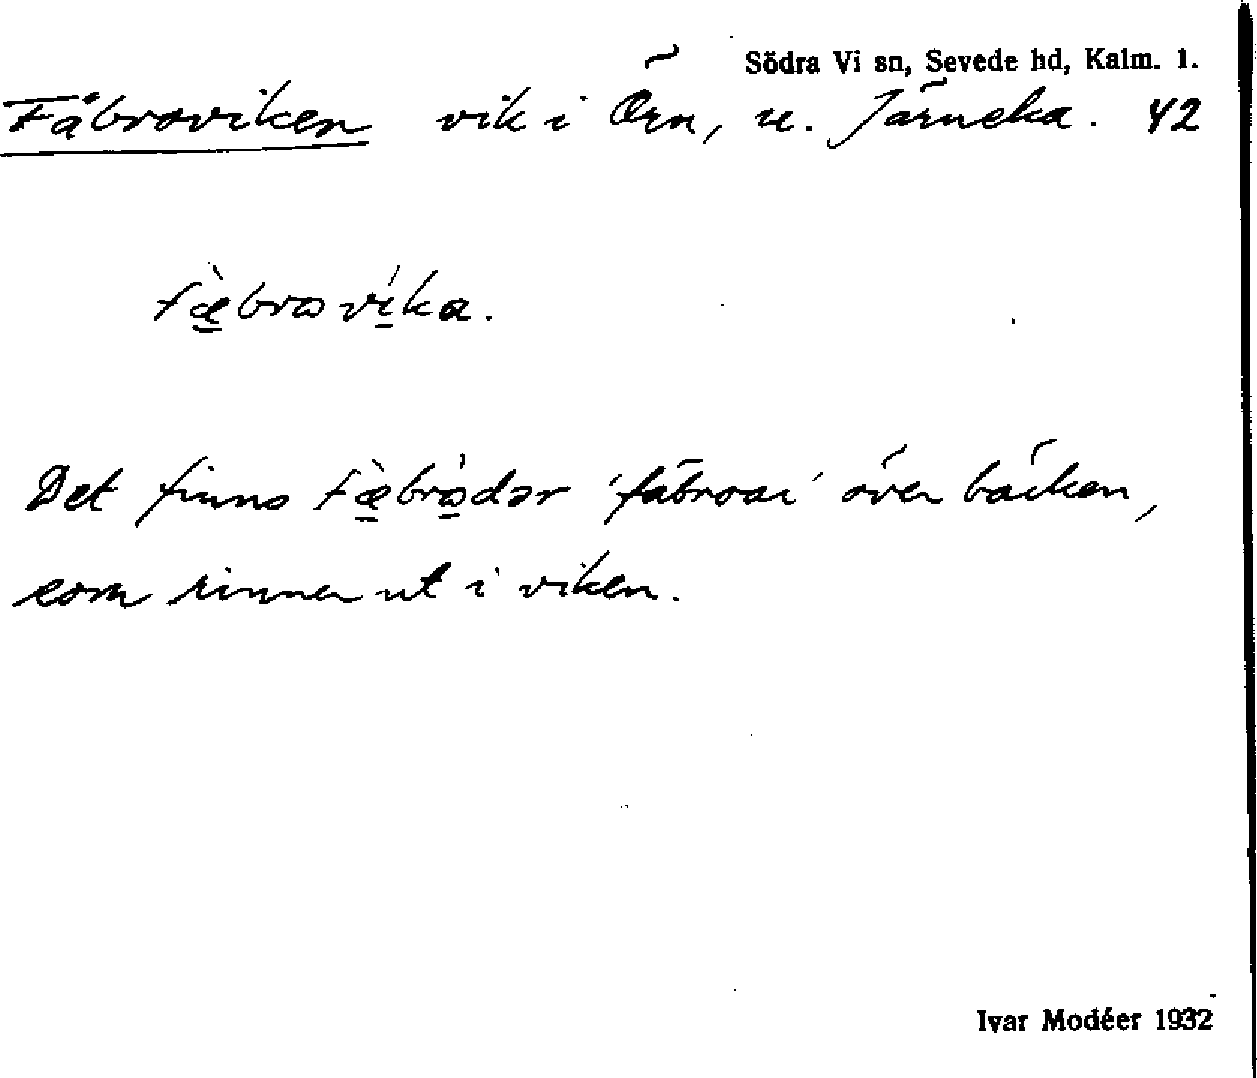 Södra Vi sn, Sevede hd, Kalm. l.
Fäbroviken vik i Örn, u. Järneka. 42
fæ̀brovíka.
Det finns fæ̀bròdər 'fäbroar' över bäcken,
som rinner ut i viken.
Ivar Modéer 1932